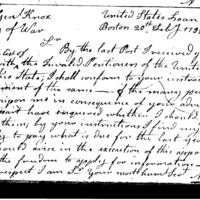 Gen Knox United States Loan
of War Boston 20th Sept 179
Sir
By the last Post I received y
with the Invalid Pensioners of the Unite
this State, I shall conform to your instruc
ment of the same — of the many pe
upon me in consequence of your adve
part have inquired whether I should
them, by your instructions I find my
to pay what is due for the last year
should arise in the execution of this
the freedom to apply for information
respect I am Sir Your most hum Servt